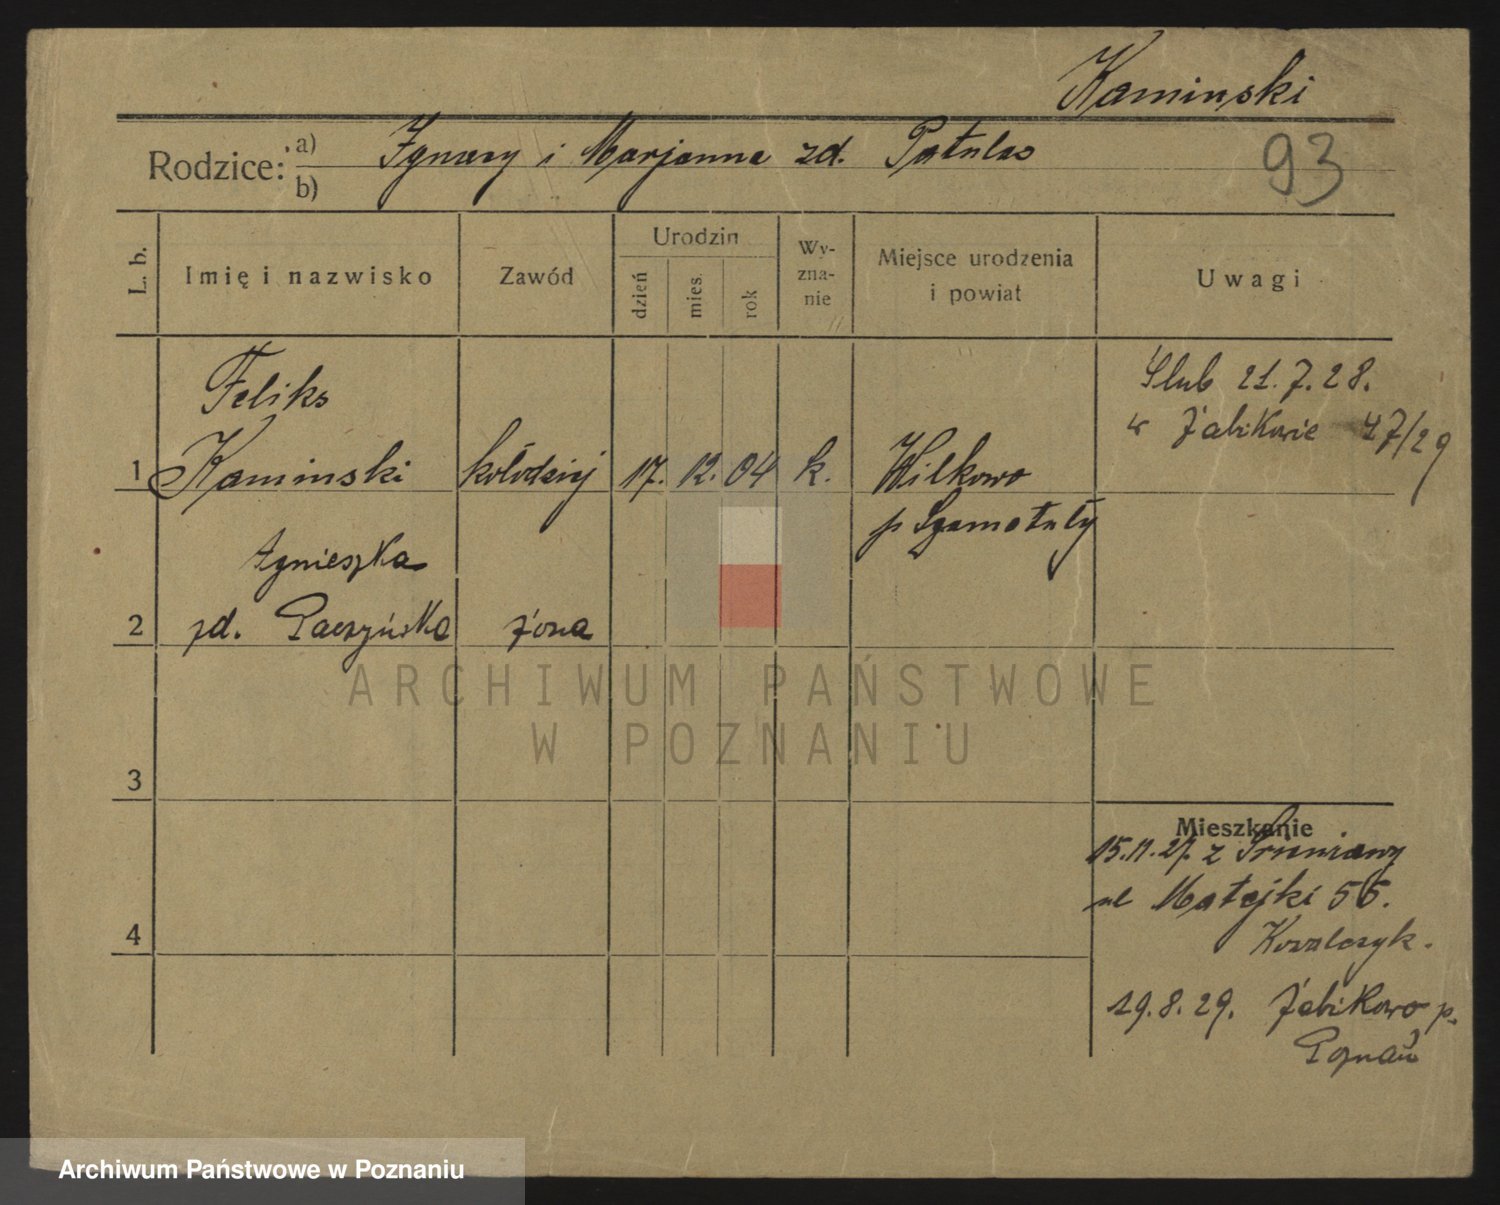 Kaminski
93
Rodzice: a) Ignacy i Marjanna zd. Patulas
b)
L. b.
Imię i nazwisko
Zawód
Urodzin
dzień
mies.
rok
Wy-
zna-
nie
Miejsce urodzenia
i powiat
Uwagi
Feliks
1 Kaminski kołodziej 17. 12. 04 k. Wilkowo
p Szamotuły
Ślub 21.7.28.
w Żabikowie 47/29
Agnieszka
2 zd. Paczyńska żona
3
4
Mieszkanie
15.11.27. z
ul Matejki 55.
Kowalczyk.
19.8.29. Żabikowo p.
Poznań
ARCHIWUM PAŃSTWOWE
W POZNANIU
Archiwum Państwowe w Poznaniu